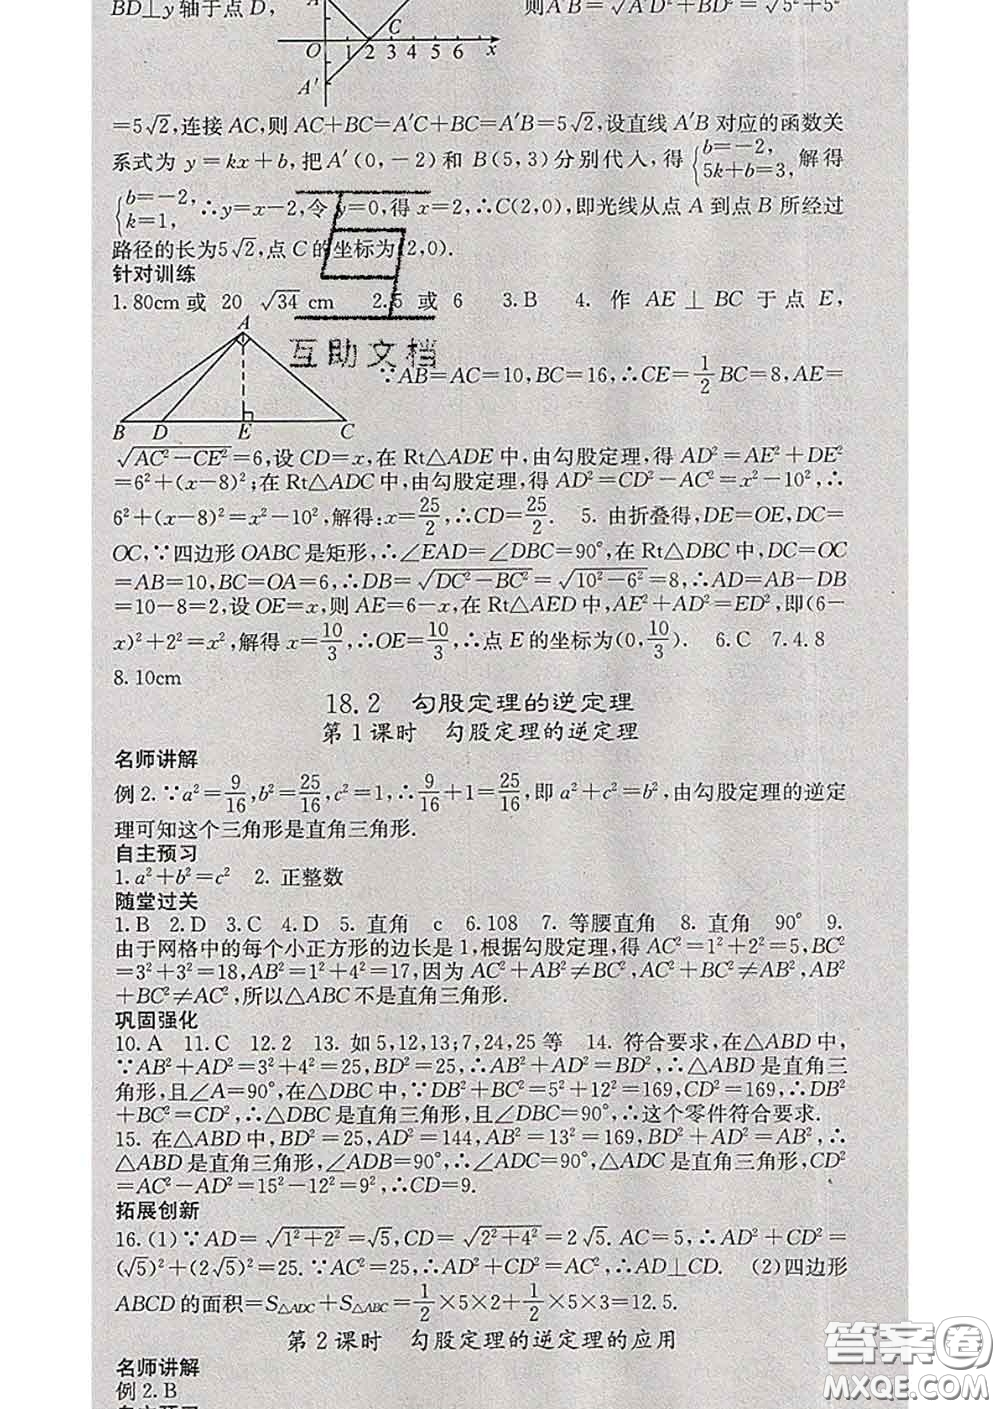 BD⊥y轴于点D, 则A'B=√A'D²+BD²=√5²+5²
A
C
O 1 2 3 4 5 6 x
A'
=5√2,连接AC,则AC+BC=A'C+BC=A'B=5√2,设直线A'B对应的函数关
系式为y=kx+b,把A'(0,-2)和B(5,3)分别代入,得{b=-2, 5k+b=3,解得
{b=-2, k=1, ∴y=x-2,令y=0,得x=2,∴C(2,0),即光线从点A到点B所经过
路径的长为5√2,点C的坐标为(2,0).
针对训练
1.80cm或20√34cm 2.5或6 3.B 4.作AE⊥BC于点E,
A
B D E C
互助文档
∵AB=AC=10,BC=16,∴CE=1/2BC=8,AE=
√AC²-CE²=6,设CD=x,在Rt△ADE中,由勾股定理,得AD²=AE²+DE²
=6²+(x-8)²;在Rt△ADC中,由勾股定理,得AD²=CD²-AC²=x²-10²,∴
6²+(x-8)²=x²-10²,解得:x=25/2,∴CD=25/2. 5.由折叠得,DE=OE,DC=
OC,∵四边形OABC是矩形,∴∠EAD=∠DBC=90°,在Rt△DBC中,DC=OC
=AB=10,BC=OA=6,∴DB=√DC²-BC²=√10²-6²=8,∴AD=AB-DB
=10-8=2,设OE=x,则AE=6-x,在Rt△AED中,AE²+AD²=ED²,即(6-
x)²+2²=x²,解得x=10/3,∴OE=10/3,∴点E的坐标为(0,10/3). 6.C 7.4.8
8.10cm
18.2 勾股定理的逆定理
第1课时 勾股定理的逆定理
名师讲解
例2.∵a²=9/16,b²=25/16,c²=1,∴9/16+1=25/16,即a²+c²=b²,由勾股定理的逆定
理可知这个三角形是直角三角形.
自主预习
1.a²+b²=c² 2.正整数
随堂过关
1.B 2.D 3.C 4.D 5.直角 c 6.108 7.等腰直角 8.直角 90° 9.
由于网格中的每个小正方形的边长是1,根据勾股定理,得AC²=1²+2²=5,BC²
=3²+3²=18,AB²=1²+4²=17,因为AC²+AB²≠BC²,AC²+BC²≠AB²,AB²
+BC²≠AC²,所以△ABC不是直角三角形.
巩固强化
10.A 11.C 12.2 13.如5,12,13;7,24,25等 14.符合要求,在△ABD中,
∵AB²+AD²=3²+4²=25,BD²=25,∴AB²+AD²=BD²,∴△ABD是直角三
角形,且∠A=90°,在△DBC中,∵DB²+BC²=5²+12²=169,CD²=169,∴DB²
+BC²=CD²,∴△DBC是直角三角形,且∠DBC=90°,∴这个零件符合要求.
15.在△ABD中,BD²=25,AD²=144,AB²=13²=169,BD²+AD²=AB²,∴
△ABD是直角三角形,∠ADB=90°,∴∠ADC=90°,△ADC是直角三角形,CD²
=AC²-AD²=15²-12²=9²,∴CD=9.
拓展创新
16.(1)∵AD=√1²+2²=√5,CD=√2²+4²=2√5.AC=5,∴AD²+CD²=
(√5)²+(2√5)²=25.∵AC²=25,∴AD²+CD²=AC²,∴AD⊥CD. (2)四边形
ABCD的面积=S△ADC+S△ABC=1/2×5×2+1/2×5×3=12.5.
第2课时 勾股定理的逆定理的应用
名师讲解
例2.B
自主预习
答案圈
MXQE.COM